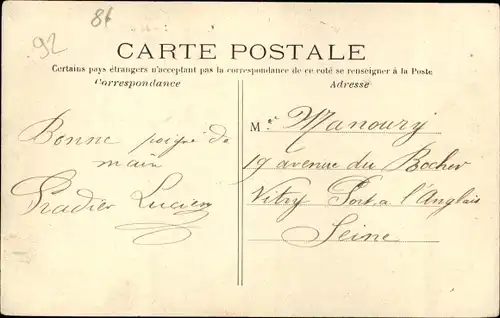 92
86
CARTE POSTALE
Certains pays étrangers n'acceptant pas la correspondance de ce coté se renseigner à la Poste
Correspondance
Adresse
Bonne poigné de
main
Pradier Lucien
M. Manoury
19 avenue du Rocher
Vitry Port à l'Anglais
Seine